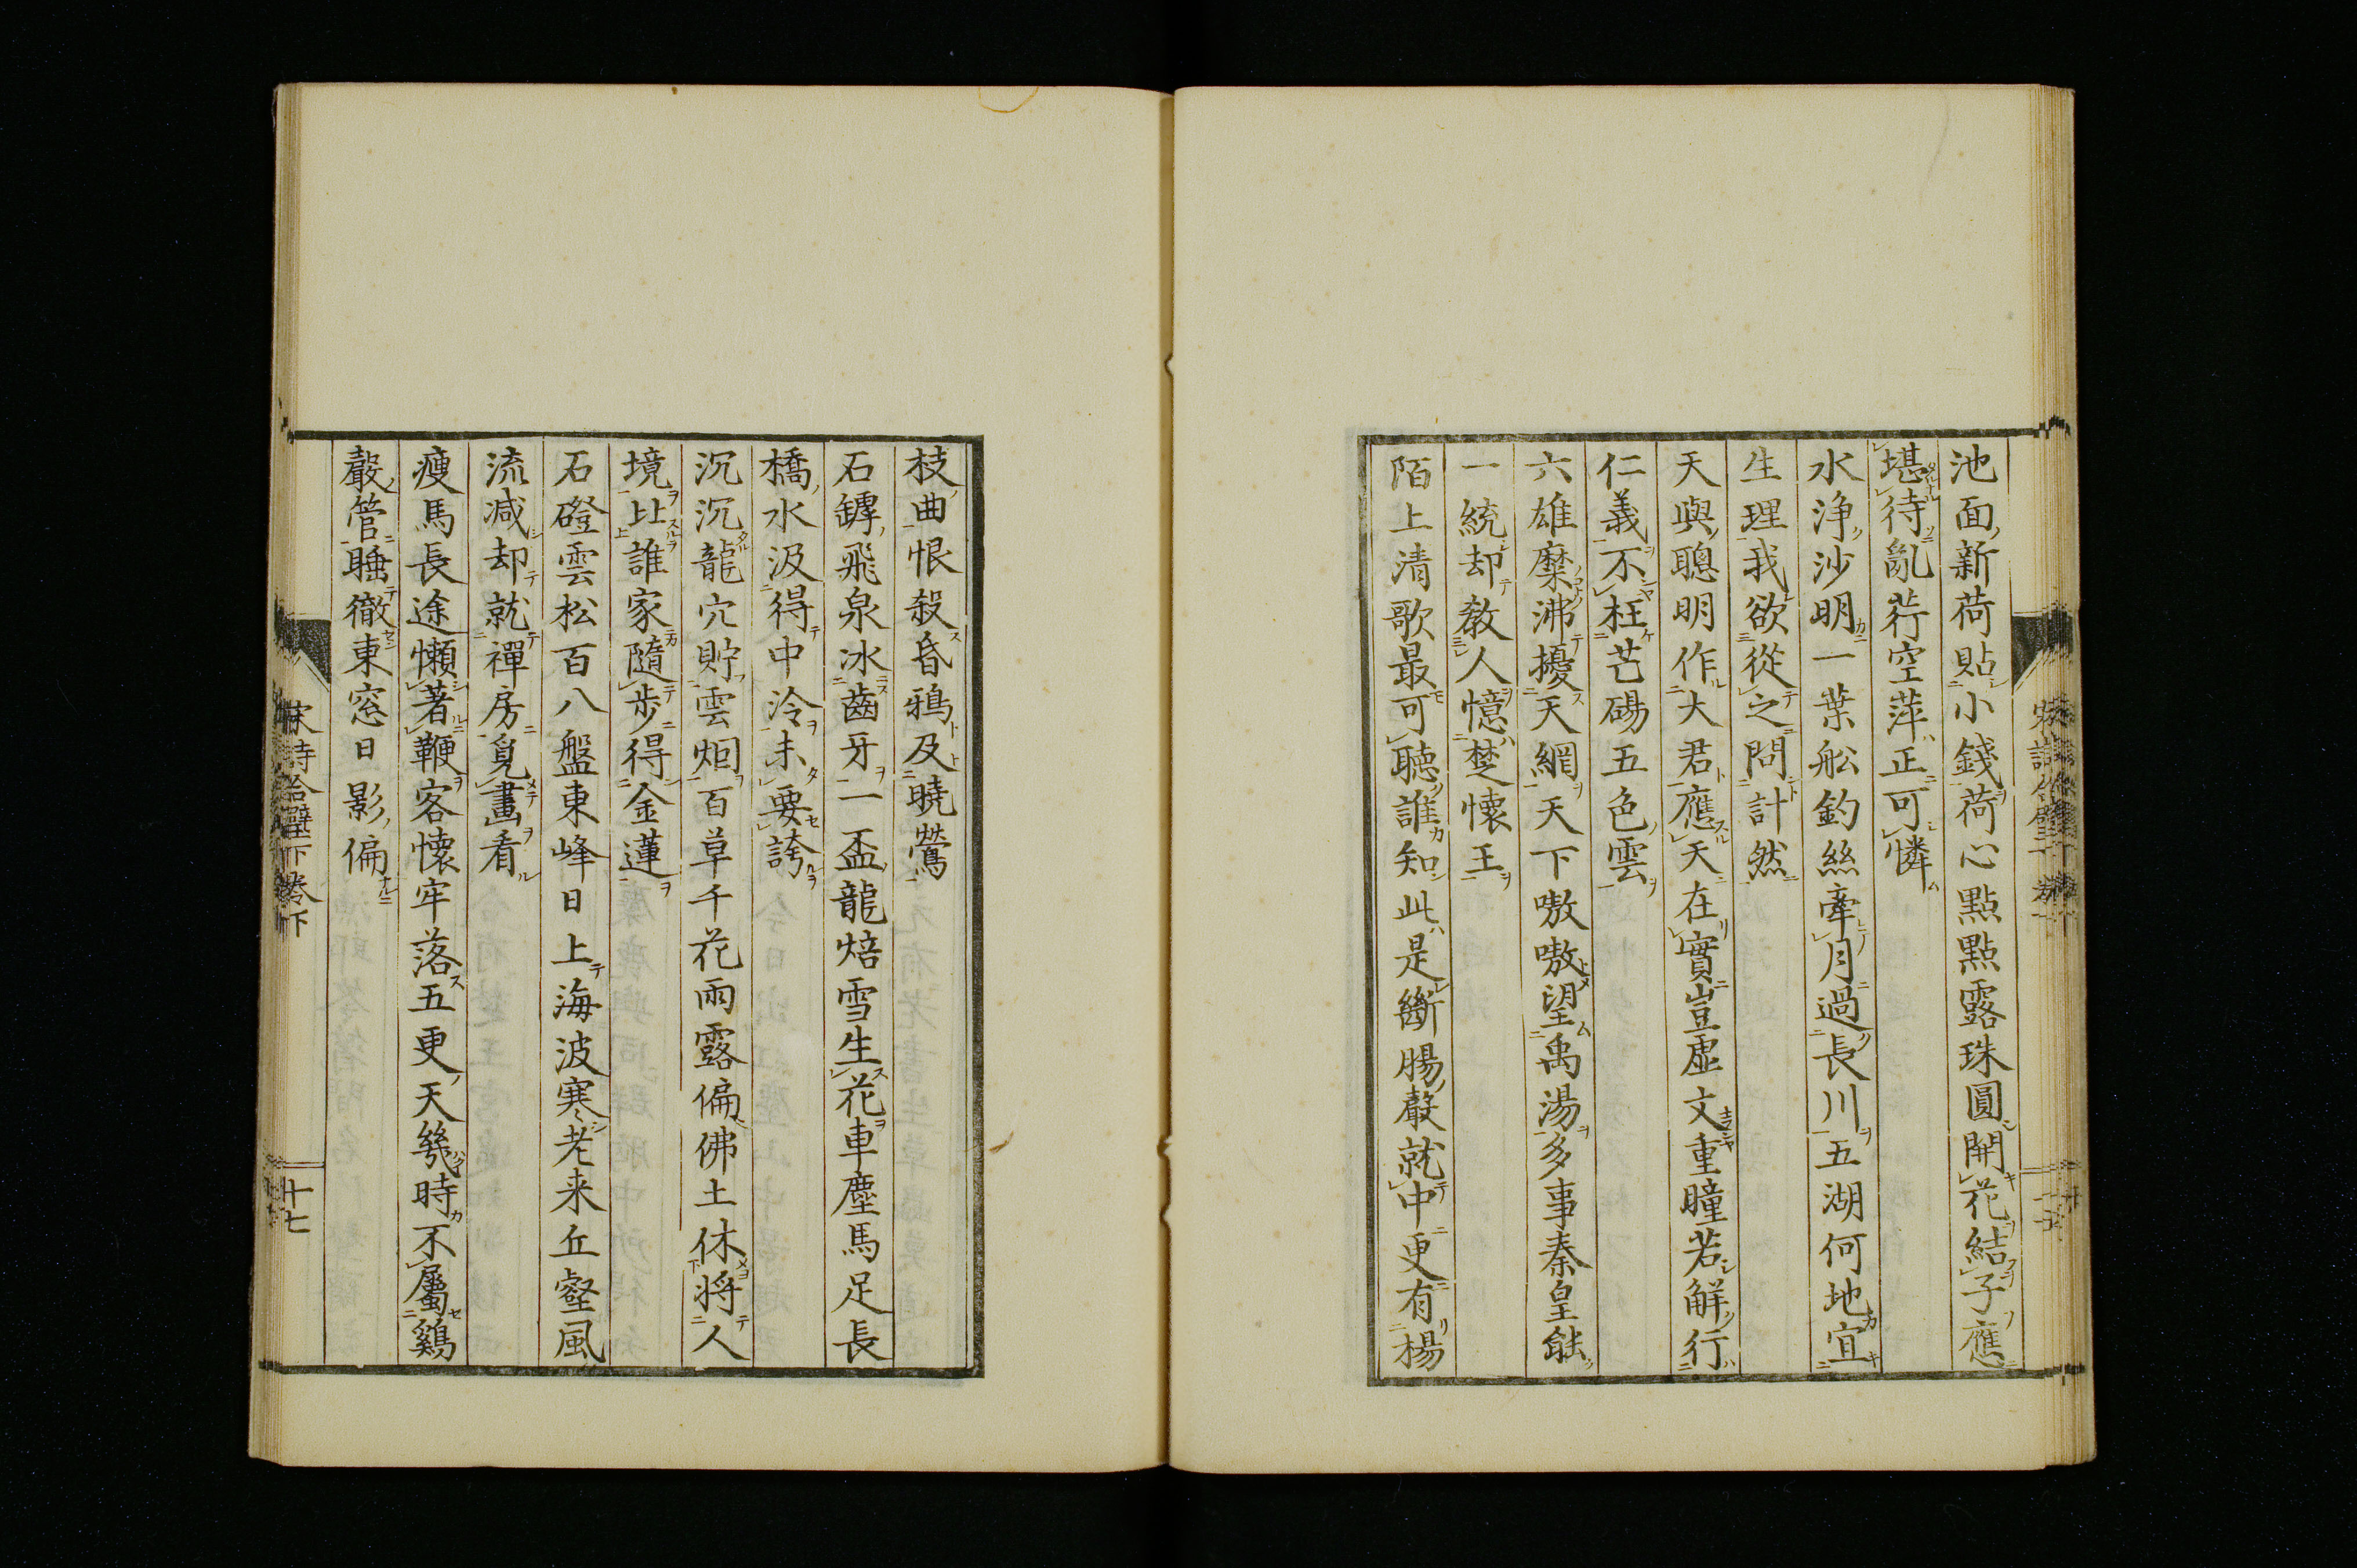 池面新荷貼小錢荷心點點露珠圓開花結子應
堪待亂荇空萍正可憐
水浄沙明一葉舩釣絲牽月過長川五湖何地宜
生理我欲從之問計然
天與聰明作大君應天在實豈虛文重瞳若觧行
仁義不枉芒碭五色雲
六雄糜沸擾天網天下嗷嗷望禹湯多事秦皇能
一統却教人憶楚懷王
陌上清歌最可聽誰知此是斷腸聲就中更有楊
枝曲恨殺昏鴉及曉鶯
石罅飛泉冰齒牙一盃龍焙雪生花車塵馬足長
橋水汲得中泠未要誇
沉沉龍穴貯雲烟百草千花雨露偏佛土休將人
境比誰家隨步得金蓮
石磴雲松百八盤東峰日上海波寒老来丘壑風
流减却就禪房覓畫看
瘦馬長途懶著鞭客懷牢落五更天幾時不屬鷄
聲管睡徹東窓日影偏
宋詩合璧下卷下
十七